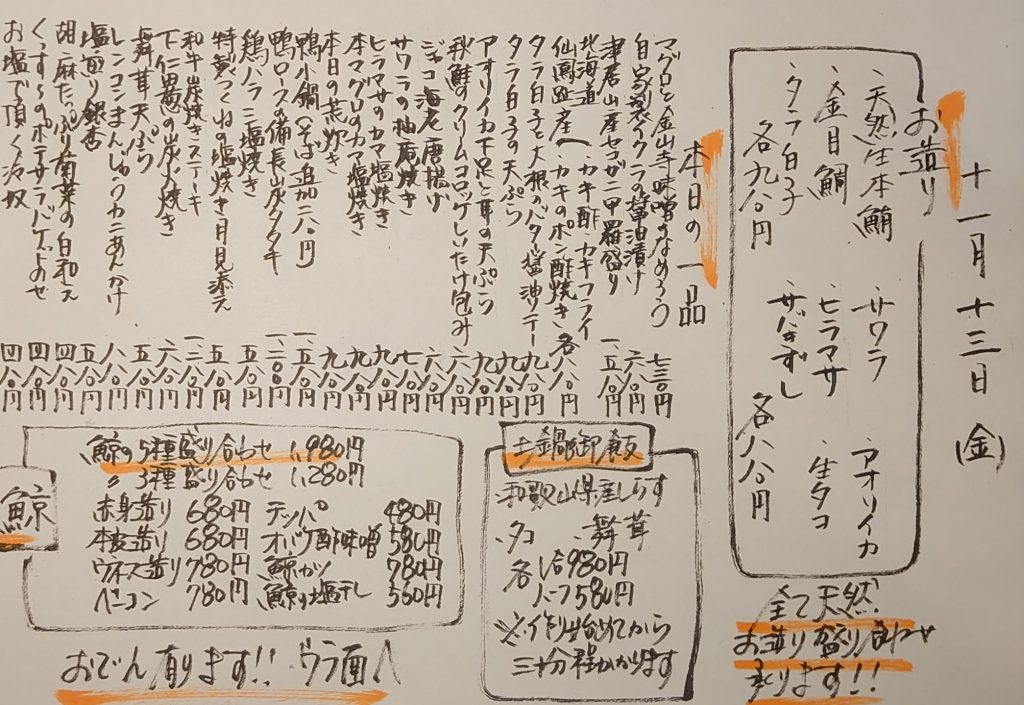 十一月十三日（金）
お造り
・天然生本鮪
・金目鯛
・タラ白子
各九八〇円
・サワラ
・ヒラマサ
・サバきずし
・アオリイカ
・生タコ
各八八〇円
全て天然
お造り盛り合わせ
承ります!!
本日の一品
マグロと金山寺味噌のなめろう 七三〇円
自家製イクラの醤油漬け 六八〇円
津居山産セコガニ甲羅盛り 一、五八〇円
北海道
仙鳳趾産へ・カキ酢・カキフライ
・カキのポン酢焼き 各八八〇円
タラ白子と大根のバター醤油ソテー 九八〇円
タラ白子の天ぷら 九八〇円
アオリイカ下足と耳の天ぷら 九八〇円
秋鮭のクリームコロッケしいたけ包み 六八〇円
ジャコ海老唐揚げ 六八〇円
サワラの柚庵焼き 七八〇円
ヒラマサのカマ塩焼き 九八〇円
本マグロのカマ塩焼き 九八〇円
本日の荒炊き 九八〇円
鴨小鍋（そば追加二八〇円 一、五八〇円
鴨ロースの備長炭タタキ 一、二八〇円
鶏ハラミ塩焼き 五八〇円
特製つくねの塩焼き月見添え 五八〇円
和牛炭焼きステーキ 一、三八〇円
下仁田葱の炭火焼き 六八〇円
舞茸天ぷら 五八〇円
レンコンまんじゅうカニあんかけ 八八〇円
塩煎り銀杏 五八〇円
胡麻たっぷり菊菜の白和え 四八〇円
くっすんのポテサラバゲットのせ 四八〇円
お塩で頂く冷奴 四八〇円
土鍋御飯
和歌山県産しらす
タコ 舞茸
各1合980円
ハーフ580円
※作り始めてから
三十分程かかります
鯨
鯨の5種盛り合わせ 1,980円
〃3種盛り合わせ 1,280円
赤身造り 680円 テッパ 480円
本皮造り 680円 オバケ酢味噌 580円
ウネス造り 780円 鯨カツ 780円
ベーコン 780円 鯨の塩干し 580円
おでん有ります!! ウラ面へ